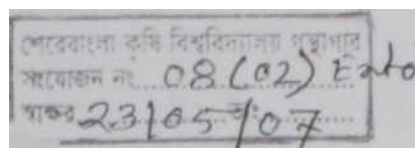 শেরেবাংলা কৃষি বিশ্ববিদ্যালয় গ্রন্থাগার
সংযোজন নং 08 (02) Ento
স্বাক্ষর 23/05/07